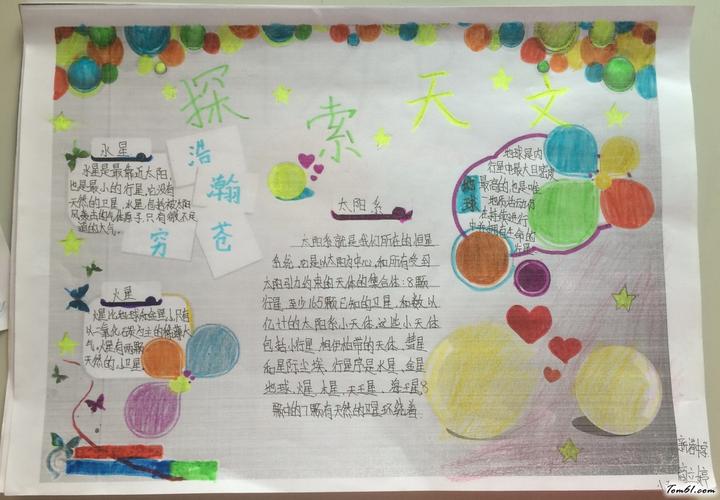 探索天文
水星
水星是最靠近太阳
也是最小的行星,它没有
天然的卫星,水星
大气。
浩瀚
苍穹
火星
火星比地球和金星小,只有
以二氧化碳为主的稀薄大
气。火星有两颗
天然的小卫星
太阳系
太阳系就是我们所在的恒星
系统,它是以太阳为中心,和所有受到
太阳引力约束的天体的集合体:8颗
行星,至少165颗已知的卫星,和数以
亿计的太阳系小天体,这些小天体
包括小行星,柯伊伯带的天体,彗星
和星际尘埃,行星序是水星,金星
地球,火星,木星,天王星,海王星,8
颗中的7颗有天然的卫星环绕着
地球
地球是内
行星中最大且密度
最高的,也是唯
一地质活动仍
在持续进行
中并拥有生命的
行星
Tom61.com